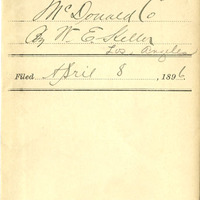 McDonald Co
By W. E. Keller
Los Angeles
Filed April 8, 1896.